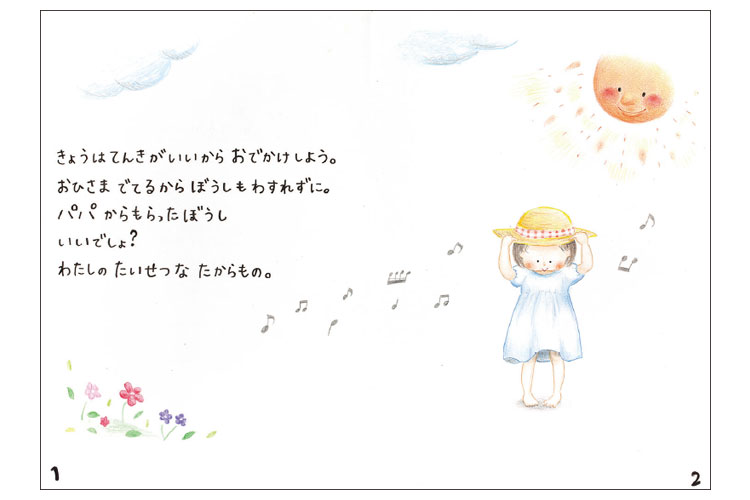 きょうはてんきがいいから おでかけしよう。
おひさま でてるから ぼうしも わすれずに。
パパ からもらった ぼうし
いいでしょ?
わたしの たいせつな たからもの。
1
2